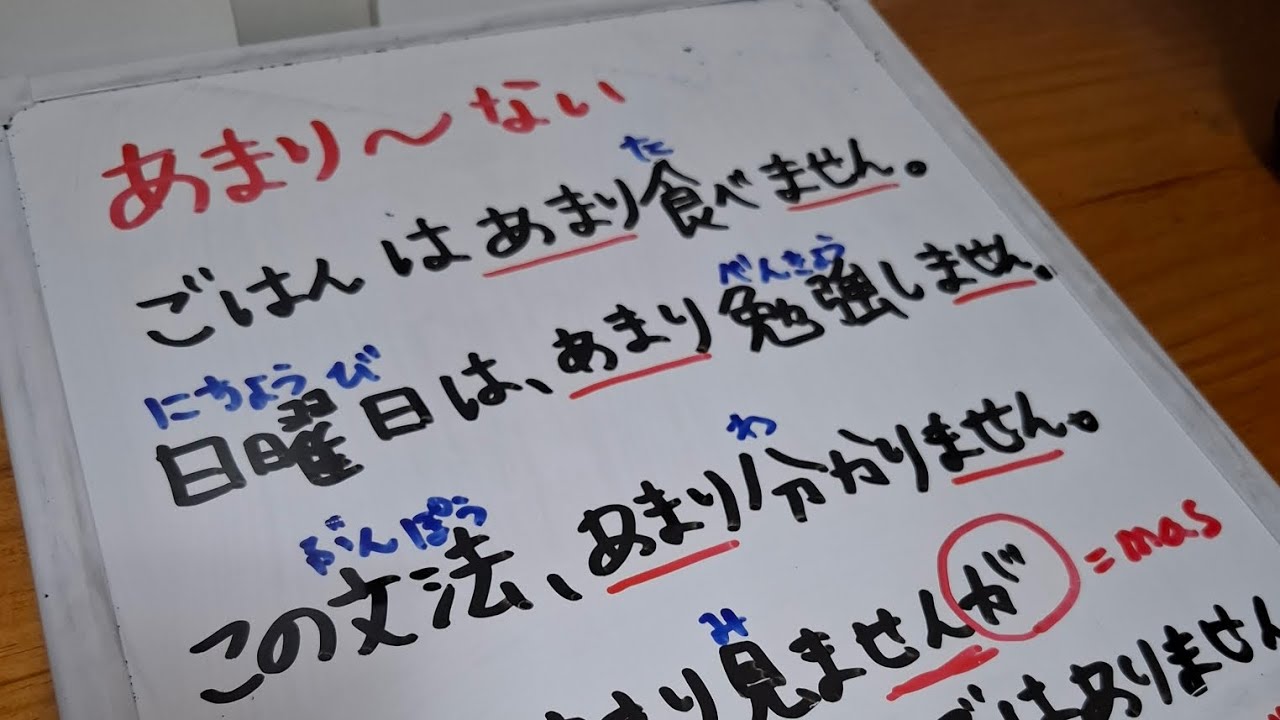 あまり〜ない
た
ごはんはあまり食べません。
べんきょう
日曜日は、あまり勉強しません。
にちようび
わ
この文法、あまり分かりません。
ぶんぽう
み
まり見ませんが = mas
ではありません